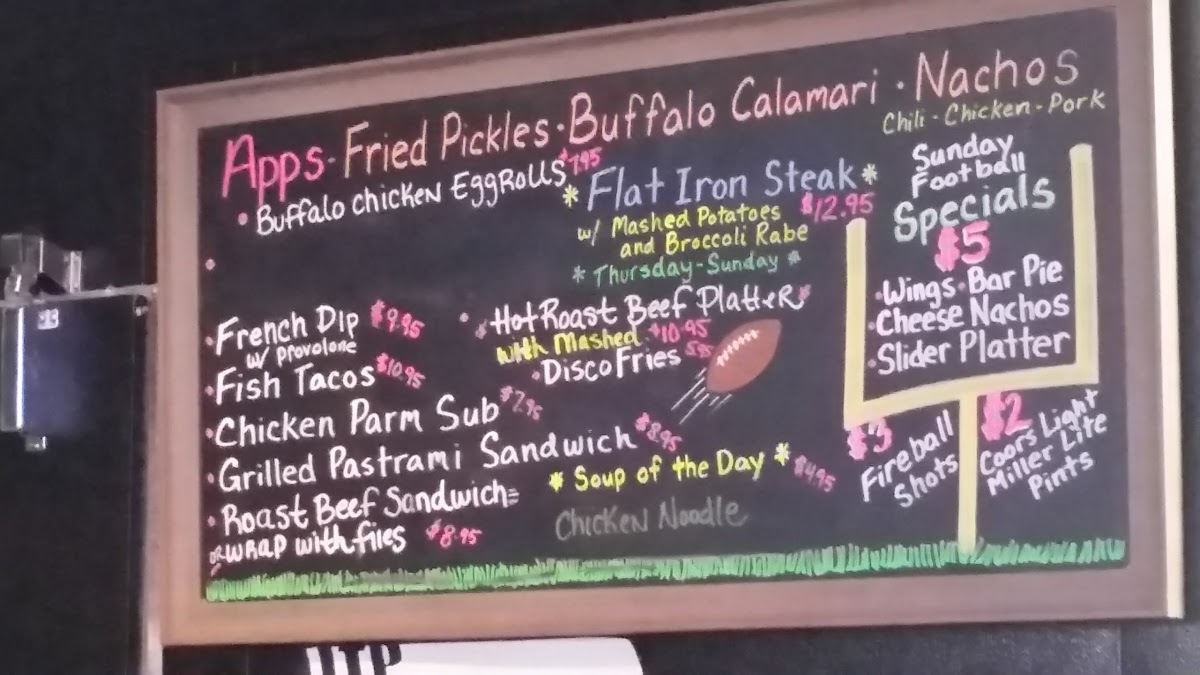 Apps - Fried Pickles · Buffalo Calamari · Nachos
Chili - Chicken - Pork
• Buffalo Chicken EggRolls $7.95
* Flat Iron Steak *
w/ Mashed Potatoes $12.95
and Broccoli Rabe
* Thursday-Sunday *
• French Dip $9.95
w/ provolone
• Fish Tacos $10.95
• Chicken Parm Sub $7.95
• Grilled Pastrami Sandwich $8.95
• Roast Beef Sandwich
or wrap with fries $8.95
• Hot Roast Beef Platter
with Mashed $10.95
• Disco Fries
* Soup of the Day * $4.95
Chicken Noodle
Sunday
Football
Specials
$5
• Wings • Bar Pie
• Cheese Nachos
• Slider Platter
$3
Fireball
Shots
$2
Coors Light
Miller Lite
Pints